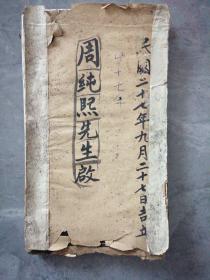 民國二十七年九月二十七日吉立
周純熙先生啟